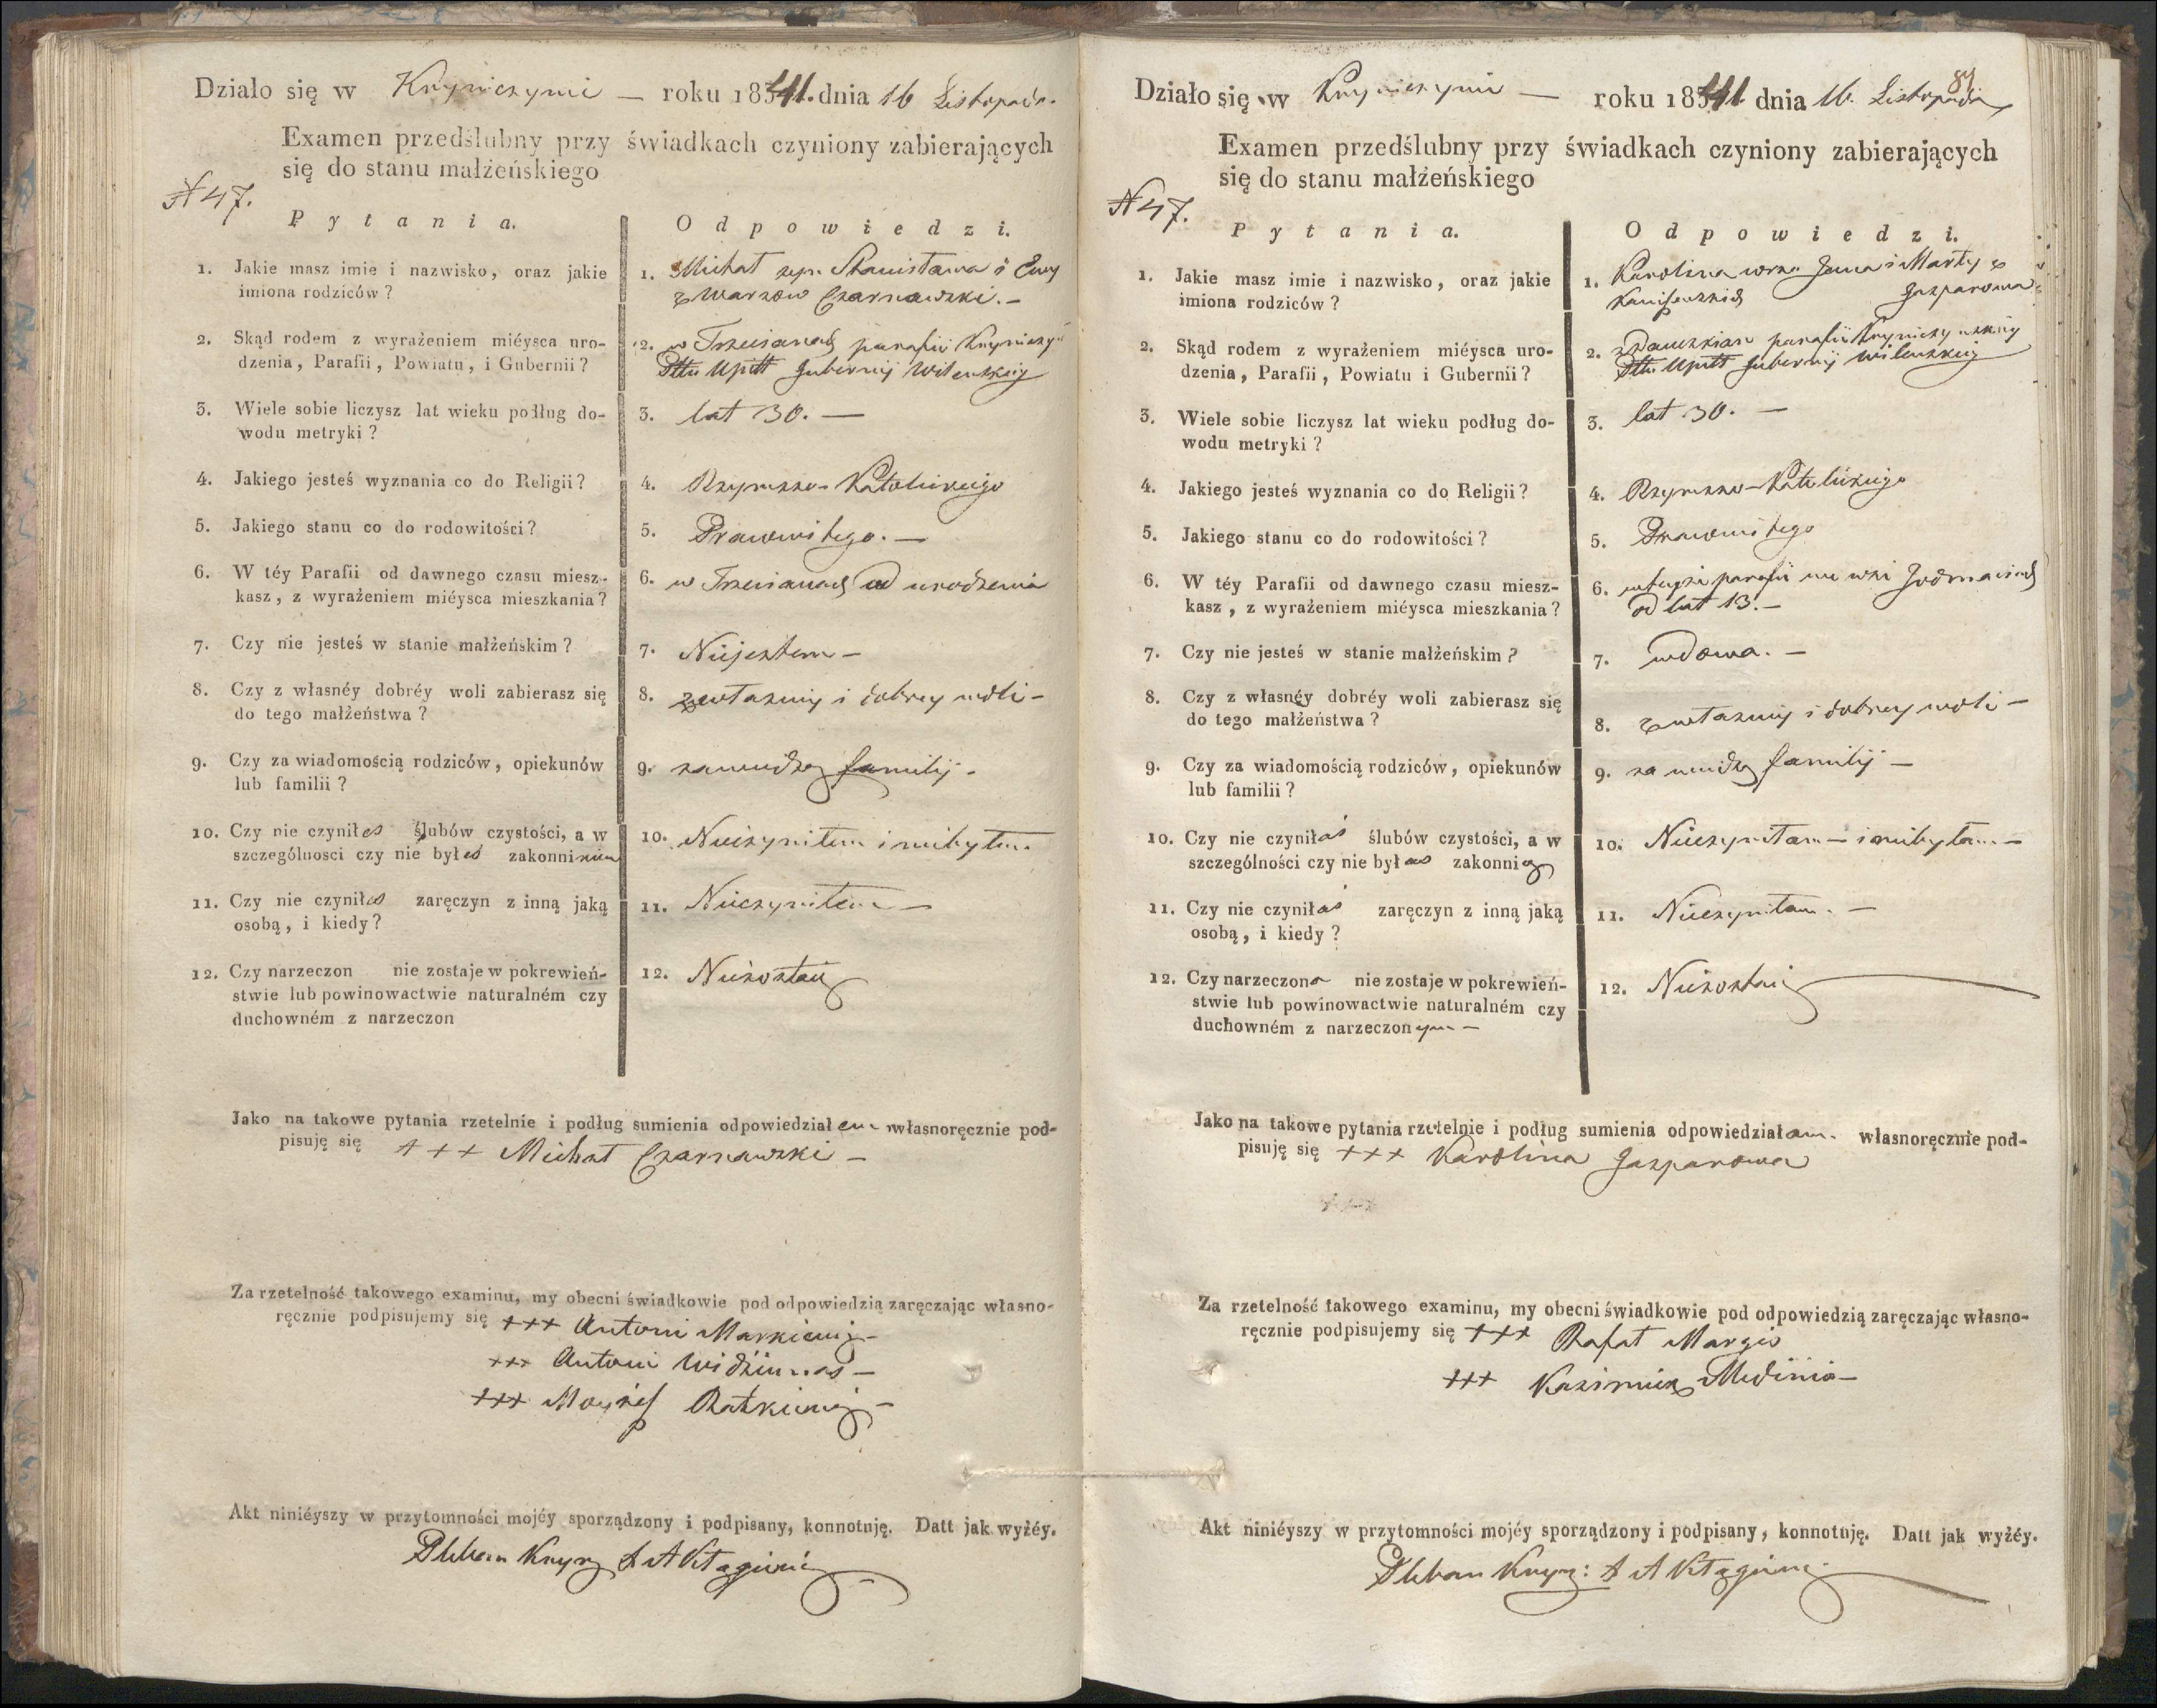 Działo się w Knyniczynie — roku 1841. dnia 16 Listopada.
Examen przedślubny przy świadkach czyniony zabierających
się do stanu małżeńskiego
N 47.
Pytania. Odpowiedzi.
1. Jakie masz imie i nazwisko, oraz jakie
imiona rodziców?
1. Michał syn Stanisława i Ewy
z Warzow Czarnawski. —
2. Skąd rodem z wyrażeniem miéysca uro-
dzenia, Parafii, Powiatu, i Gubernii?
2. w parafii
Pttu Upitt Gubernij Wileńskiey
3. Wiele sobie liczysz lat wieku podług do-
wodu metryki?
3. lat 30. —
4. Jakiego jesteś wyznania co do Religii?
4. Rzymsko-Katolickiego
5. Jakiego stanu co do rodowitości?
5. Prawowitego. —
6. W téy Parafii od dawnego czasu miesz-
kasz, z wyrażeniem miéysca mieszkania?
6. w od urodzenia
7. Czy nie jesteś w stanie małżeńskim?
7. Niejestem —
8. Czy z własnéy dobréy woli zabierasz się
do tego małżeństwa?
8. z własney i dobrey woli —
9. Czy za wiadomością rodziców, opiekunów
lub familii?
9. za wiedzą familij.
10. Czy nie czyniłeś ślubów czystości, a w
szczególnosci czy nie byłeś zakonnikiem
10. Nieczyniłem i niebyłem
11. Czy nie czyniłeś zaręczyn z inną jaką
osobą, i kiedy?
11. Nieczyniłem —
12. Czy narzeczon nie zostaje w pokrewień-
stwie lub powinowactwie naturalném czy
duchowném z narzeczon
12. Niezostaie
Jako na takowe pytania rzetelnie i podług sumienia odpowiedziałem własnoręcznie pod-
pisuję się +++ Michał Czarnawski —
Za rzetelność takowego examinu, my obecni świadkowie pod odpowiedzią zaręczając własno-
ręcznie podpisujemy się +++ Antoni Markiewicz —
+++ Antoni Widžiunas —
+++ Ratkiewicz —
Akt niniéyszy w przytomności mojéy sporządzony i podpisany, konnotuję. Datt jak wyżéy.
Pleban
81
Działo się w Knyniczynie — roku 1841 dnia 16. Listopada
Examen przedślubny przy świadkach czyniony zabierających
się do stanu małżeńskiego
N 47.
Pytania. Odpowiedzi.
1. Jakie masz imie i nazwisko, oraz jakie
imiona rodziców?
1. Karolina corka Jana i Marty z
Gasparowa
2. Skąd rodem z wyrażeniem miéysca uro-
dzenia, Parafii, Powiatu i Gubernii?
2. z parafii
Pttu Upitt Gubernij Wileńskiey
3. Wiele sobie liczysz lat wieku podług do-
wodu metryki?
3. lat 30. —
4. Jakiego jesteś wyznania co do Religii?
4. Rzymsko-Katolickiego
5. Jakiego stanu co do rodowitości?
5. Prawowitego
6. W téy Parafii od dawnego czasu miesz-
kasz, z wyrażeniem miéysca mieszkania?
6. w teyże parafii we wsi
od lat 13. —
7. Czy nie jesteś w stanie małżeńskim?
7. wdowa. —
8. Czy z własnéy dobréy woli zabierasz się
do tego małżeństwa?
8. z własney i dobrey woli —
9. Czy za wiadomością rodziców, opiekunów
lub familii?
9. za wiedzą familij —
10. Czy nie czyniłaś ślubów czystości, a w
szczególności czy nie byłaś zakonnicą
10. Nieczyniłam — i niebyłam —
11. Czy nie czyniłaś zaręczyn z inną jaką
osobą, i kiedy?
11. Nieczyniłam. —
12. Czy narzeczona nie zostaje w pokrewień-
stwie lub powinowactwie naturalném czy
duchowném z narzeczonym —
12. Niezostaie
Jako na takowe pytania rzetelnie i podług sumienia odpowiedziałam. własnoręcznie pod-
pisuję się +++ Karolina Gasparowa
Za rzetelność takowego examinu, my obecni świadkowie pod odpowiedzią zaręczając własno-
ręcznie podpisujemy się +++ Rafał Margis
+++ Kazimierz Medinis —
Akt niniéyszy w przytomności mojéy sporządzony i podpisany, konnotuję. Datt jak wyżéy.
Pleban